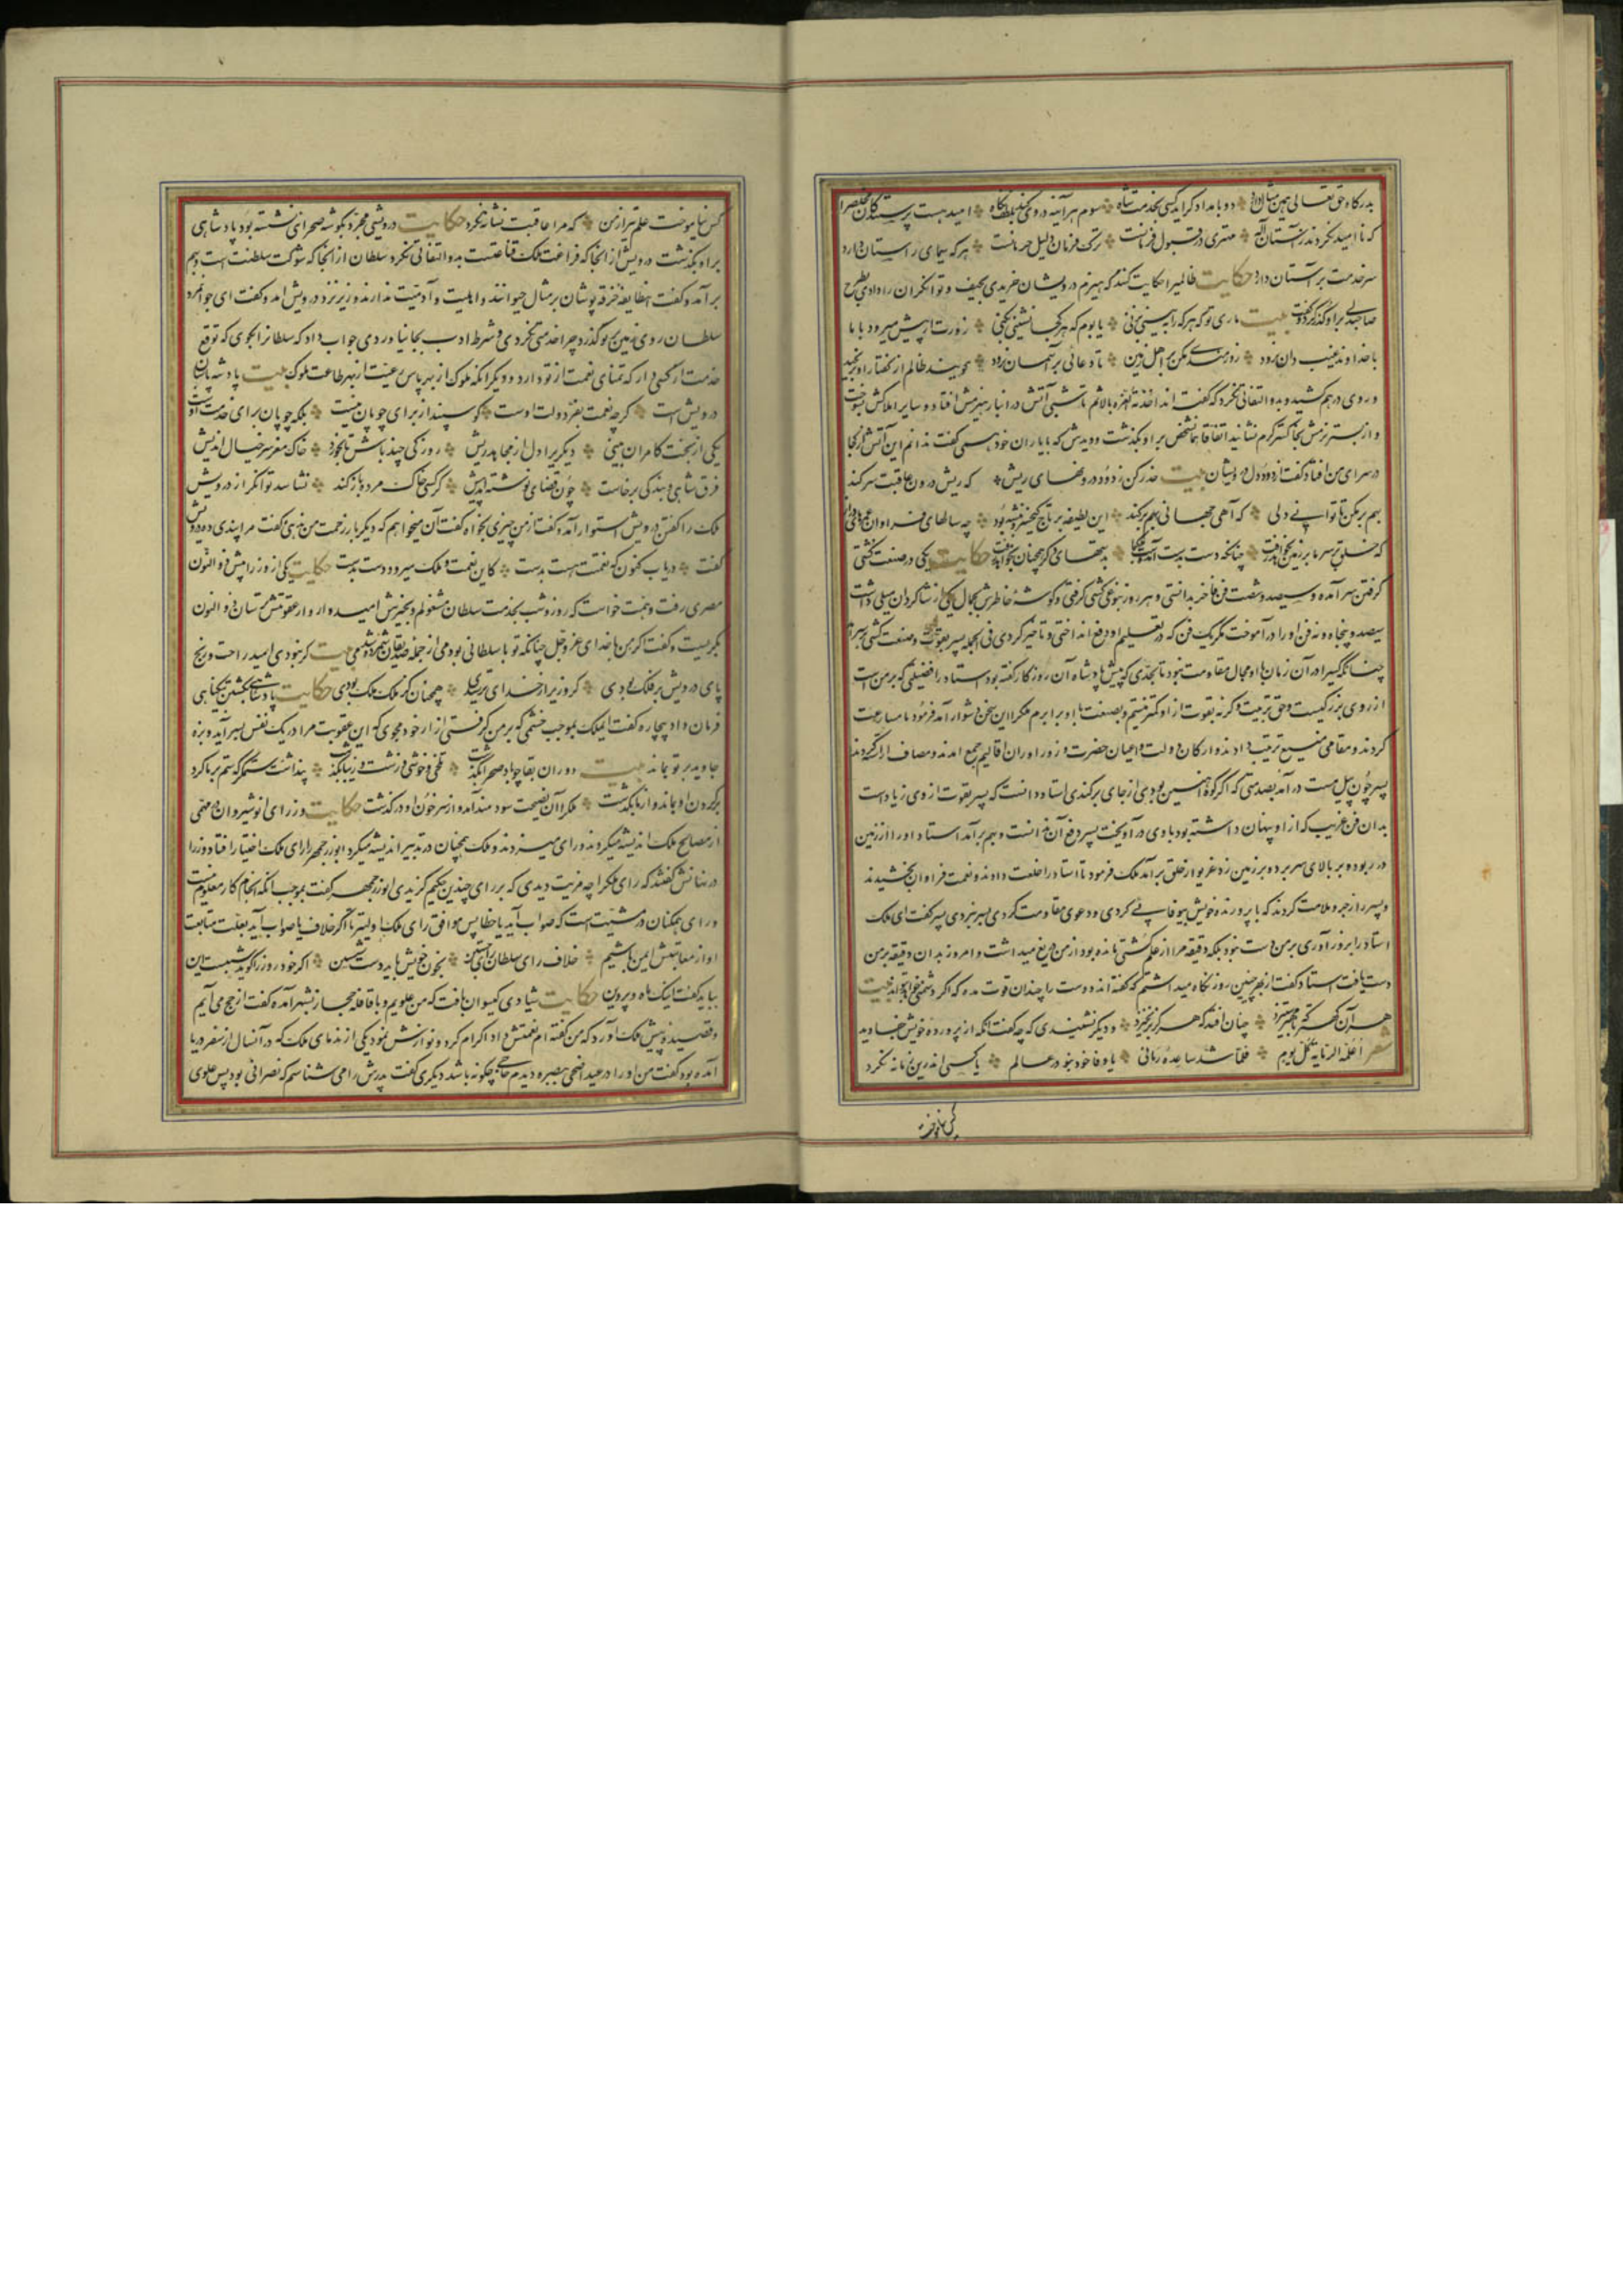 بدرگاه حق تعالی همین مثال دارد دو بامداد گر آید کسی بخدمت شاه سوم هر آینه در وی کند بلطف نگاه امید هست پرستندگان مخلص را
که ناامید نگردند ز آستان اله مهتری در قبول فرمانست ترک فرمان دلیل حرمانست هر که سیمای راستان دارد
سر خدمت بر آستان دارد حکایت ظالمیرا حکایت کنند که هیزم درویشان خریدی بحیف و توانگران را دادی بطرح
صاحبدلی برو گذر کرد و گفت بیت ماری تو که هر کرا ببینی بزنی یا بوم که هر کجا نشینی بکنی زورت ار پیش میرود با ما
با خداوند غیب دان نرود زورمندی مکن بر اهل زمین تا دعائی بر آسمان نرود ظالم از گفتار او برنجید
و روی درهم کشید و بدو التفاتی نکرد که گفته اند اخذته العزة بالاثم تا شبی آتش در انبار هیزمش افتاد و سایر املاکش بسوخت
و از بستر نرمش بخاکستر گرم نشانید اتفاقا همان شخص بر او بگذشت و دیدش که با یاران خود همی گفت ندانم این آتش از کجا
در سرای من افتاد گفت از دود دل درویشان بیت حذر کن ز دود درونهای ریش که ریش درون عاقبت سر کند
بهم بر مکن تا توانی دلی که آهی جهانی بهم بر کند این لطیفه بر تاج کیخسرو نبشته بود چه سالهای فراوان و عمرهای دراز
که خلق بر سر ما بر زمین بخواهد رفت چنانکه دست بدست آمدست ملک بما بدستهای دگر همچنان بخواهد رفت حکایت یکی در صنعت کشتی
گرفتن سر آمده و سیصد و شصت فن فاخر بدانستی و هر روز بنوعی کشتی گرفتی و گوشه خاطرش بجمال یکی از شاگردان میلی داشت
سیصد و پنجاه و نه فن او را در آموخت مگر یک فن که در تعلیم او دفع انداختی و تاخیر کردی فی الجمله پسر بقوت و صنعت کشتی بسر آمد
چنانکه کسیرا در آن زمان با او مجال مقاومت نبود تا بحدی که پیش پادشاه آن روزگار گفته بود استاد را فضیلتی که بر من است
از روی بزرگیست و حق تربیت و گرنه بقوت از او کمتر نیستم و بصنعت با او برابرم ملک را این سخن دشوار آمد فرمود تا مصارعت
کردند و مقامی متسع ترتیب دادند و ارکان دولت و اعیان حضرت و زورآوران اقالیم جمع آمدند و مصاف
پسر چون پیل مست در آمد بصدمتی که اگر کوه آهنین بودی از جای برکندی استاد دانست که پسر بقوت از وی زیادست
بدان فن غریب که از او پنهان داشته بود با وی در آویخت پسر دفع آن ندانست و بهم برآمد استاد او را از زمین
در ربوده بر بالای سر برد و بر زمین زد غریو از خلق برآمد ملک فرمود تا استاد را خلعت دادند و نعمت فراوان بخشیدند
و پسر را زجر و ملامت کردند که با پرورنده خویش بیوفائی کردی و دعوی مقاومت کردی بسر نبردی پسر گفت ای ملک
استاد را بزورآوری بر من دست نبود بلکه دقیقه مرا از علم کشتی مانده بود از من دریغ میداشت و امروز بدان دقیقه بر من
دست یافت استاد گفت از بهر چنین روز نگاه میداشتم که گفته اند دوست را چندان قوت مده که اگر دشمنی خواهد تواند بیت
هر آن کهتر که با مهتر ستیزد چنان افتد که هرگز برنخیزد و دیگر نشنیدی که چه گفت آنکه از پرورده خویش جفا دید
شعر اعلمه الرمایه کل یوم فلما اشتد ساعده رمانی یا وفا خود نبود در عالم یا کسی اندرین زمانه نکرد
کس نیاموخت
کس نیاموخت علم تیر از من که مرا عاقبت نشانه نکرد حکایت درویشی مجرد بگوشه صحرائی نشسته بود پادشاهی
بر او بگذشت درویش از آنجا که فراغت ملک قناعتست بدو التفاتی نکرد سلطان از آنجا که شوکت سلطنت است بهم
برآمد و گفت این طایفه خرقه پوشان بر مثال حیوانند و اهلیت و آدمیت ندارند وزیر نزد درویش آمد و گفت ای جوانمرد
سلطان روی زمین بر تو گذر کرد چرا خدمتی نکردی و شرط ادب بجا نیاوردی جواب داد که سلطانرا بگوی که توقع
خدمت از کسی دار که تمنای نعمت از تو دارد و دیگر آنکه ملوک از بهر پاس رعیت اند نه رعیت از بهر طاعت ملوک بیت پادشه پاسبان
درویش است گرچه نعمت بفر دولت اوست گوسپند از برای چوپان نیست بلکه چوپان برای خدمت اوست
یکی از بخت کامران بینی دیگریرا دل از مجاهده ریش روزکی چند باش تا بخورد خاک مغز سر خیال اندیش
فرق شاهی و بندگی برخاست چون قضای نوشته آمد پیش گر کسی خاک مرده باز کند نشناسد توانگر از درویش
ملک را گفتن درویش استوار آمد و گفت از من چیزی بخواه گفت آن میخواهم که دیگر بار زحمت من ندهی گفت مرا پندی ده درویش
گفت دریاب کنون که نعمتت هست بدست کاین نعمت و ملک میرود دست بدست حکایت یکی از وزرا پیش ذو النون
مصری رفت و همت خواست که روز و شب بخدمت سلطان مشغولم و بخیرش امیدوار و از عقوبتش ترسان ذو النون
بگریست و گفت اگر من با خدای عز و جل چنانکه تو با سلطانی بودمی از جمله صدیقان شمرده شدمی بیت گر نبودی امید راحت و رنج
پای درویش بر فلک بودی گر وزیر از خدای بترسیدی همچنان کز ملک ملک بودی حکایت پادشاهی بکشتن بیگناهی
فرمان داد بیچاره گفت ایملک بموجب خشمی که بر من گرفتی آزار خود مجوی که این عقوبت مرا در یک نفس بسر آید و بزه
جاوید بر تو بماند بیت دوران بقا چو باد صحرا بگذشت تلخی و خوشی و زشت و زیبا بگذشت پنداشت ستمگر که ستم بر ما کرد
بر گردن او بماند و از ما بگذشت ملک را آن نصیحت سودمند آمد و از سر خون او درگذشت حکایت وزرای انوشیروان در مهمی
از مصالح ملک اندیشه میکردند و رای میزدند و ملک همچنان در تدبیر اندیشه میکرد ابوزرجمهر را رای ملک اختیار افتاد وزرا
در نهانش گفتند که رای ملک را چه مزیت دیدی که بر رای چندین حکیم گزیدی ابوزرجمهر گفت بموجب آنکه انجام کار معلوم نیست
و رای همگنان در مشیت است که صواب آید یا خطا پس موافق رای ملک اولیتر تا اگر خلاف صواب آید بعلت متابعت
او از معاتبتش ایمن باشیم خلاف رای سلطان رای جستن بخون خویش باید دست شستن اگر خود روز را گوید شبست این
بباید گفت اینک ماه و پروین حکایت شیادی گیسوان بافت که من علویم و با قافله حجاز بشهر آمد که گفت از حج می آیم
و قصیده پیش ملک آورد که من گفته ام نعمتش داد و اکرام کرد و نوازش نمود یکی از ندمای ملک که در آنسال از سفر دریا
آمده بود گفت من او را در عید اضحی ببصره دیدم حاجی چگونه باشد دیگری گفت پدرش را می شناسم که نصرانی بود پس علوی